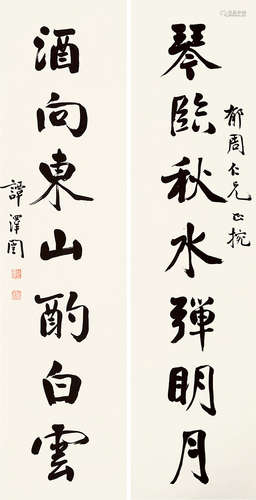 琴臨秋水彈明月
郁周仁兄正捥
酒向東山酌白雲
譚澤闓